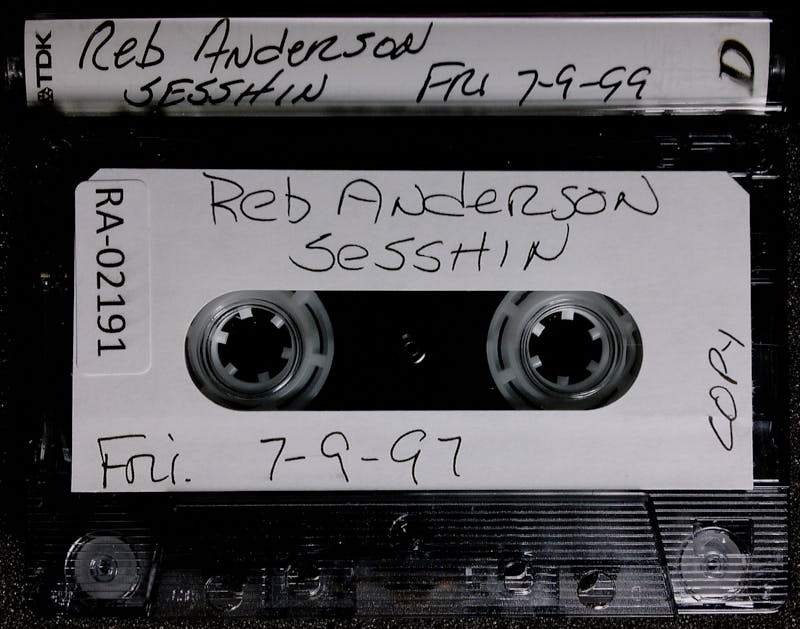 TDK
Reb Anderson
SESSHIN Fri 7-9-99
D
RA-02191
Reb Anderson
SESSHIN
COPY
Fri. 7-9-97